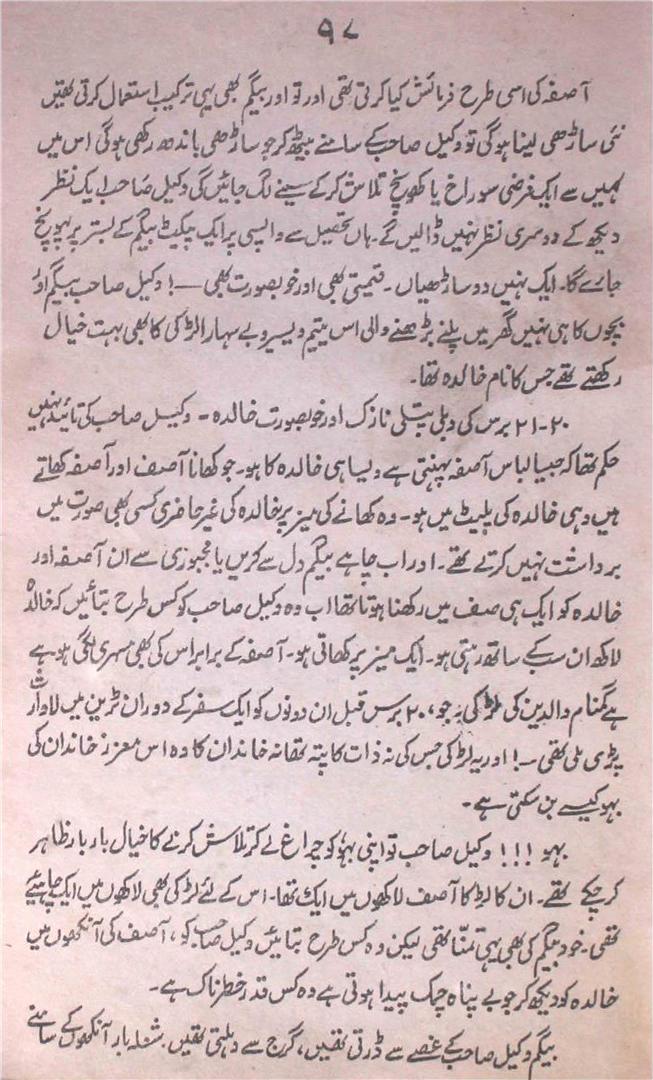 ۹۷
آصفہ کی اسی طرح فرمائش کیا کرتی تھی اور تو اور بیگم بھی یہی ترکیب استعمال کرتی تھیں
نئی ساڑھی لینا ہوگی تو وکیل صاحب کے سامنے بیٹھ کر جو ساڑھی باندھ رکھی ہوگی اس میں
کہیں سے ایک فرضی سوراخ یا کھونچ تلاش کرکے سینے لگ جائیں گی وکیل صاحب ایک نظر
دیکھ کے دوسری نظر نہیں ڈالیں گے۔ ہاں تحصیل سے واپسی پر ایک پیکٹ بیگم کے بستر پر پہونچ
جائے گا۔ ایک نہیں دو ساڑھیاں۔ قیمتی بھی اور خوبصورت بھی —! وکیل صاحب بیگم اور
بچوں کا ہی نہیں گھر میں پلنے بڑھنے والی اس یتیم ویسیر و بے سہارا لڑکی کا بھی بہت خیال
رکھتے تھے جس کا نام خالدہ تھا۔
۲۰-۲۱ برس کی دبلی پتلی نازک اور خوبصورت خالدہ۔ وکیل صاحب کی تائید نہیں
حکم تھا کہ جیسا لباس آصفہ پہنتی ہے ویسا ہی خالدہ کا ہو۔ جو کھانا آصف اور آصفہ کھاتے
ہیں وہی خالدہ کی پلیٹ میں ہو۔ وہ کھانے کی میز پر خالدہ کی غیر حاضری کسی بھی صورت میں
برداشت نہیں کرتے تھے۔ اور اب چاہے بیگم دل سے کریں یا مجبوری سے ان آصفہ اور
خالدہ کو ایک ہی صف میں رکھنا ہوتا تھا اب وہ وکیل صاحب کو کس طرح بتائیں کہ خالدہ
لاکھ ان سب کے ساتھ رہتی ہو۔ ایک میز پر کھاتی ہو۔ آصفہ کے برابر اس کی بھی مسہری لگی ہو ہے
ہے گمنام والدین کی لڑکی جو، ۲۰ برس قبل ان دونوں کو ایک سفر کے دوران ٹرین میں لاوارث
پڑی ملی تھی —! اور یہ لڑکی جس کی نہ ذات کا پتہ تھا نہ خاندان کا وہ اس معزز خاندان کی
بہو کیسے بن سکتی ہے۔
بہو !!! وکیل صاحب تو اپنی بہو کو چراغ لے کر تلاش کرنے کا خیال بار بار ظاہر
کر چکے تھے۔ ان کا لڑکا آصف لاکھوں میں ایک تھا۔ اس کے لئے لڑکی بھی لاکھوں میں ایک چاہئیے
تھی۔ خود بیگم کی بھی یہی تمنّا تھی لیکن وہ کس طرح بتائیں وکیل صاحب کو، آصف کی آنکھوں میں
خالدہ کو دیکھ کر جو بے پناہ چمک پیدا ہوتی ہے وہ کس قدر خطرناک ہے۔
بیگم وکیل صاحب کے غصے سے ڈرتی تھیں، گرج سے دہلتی تھیں۔ شعلہ بار آنکھوں کے سامنے